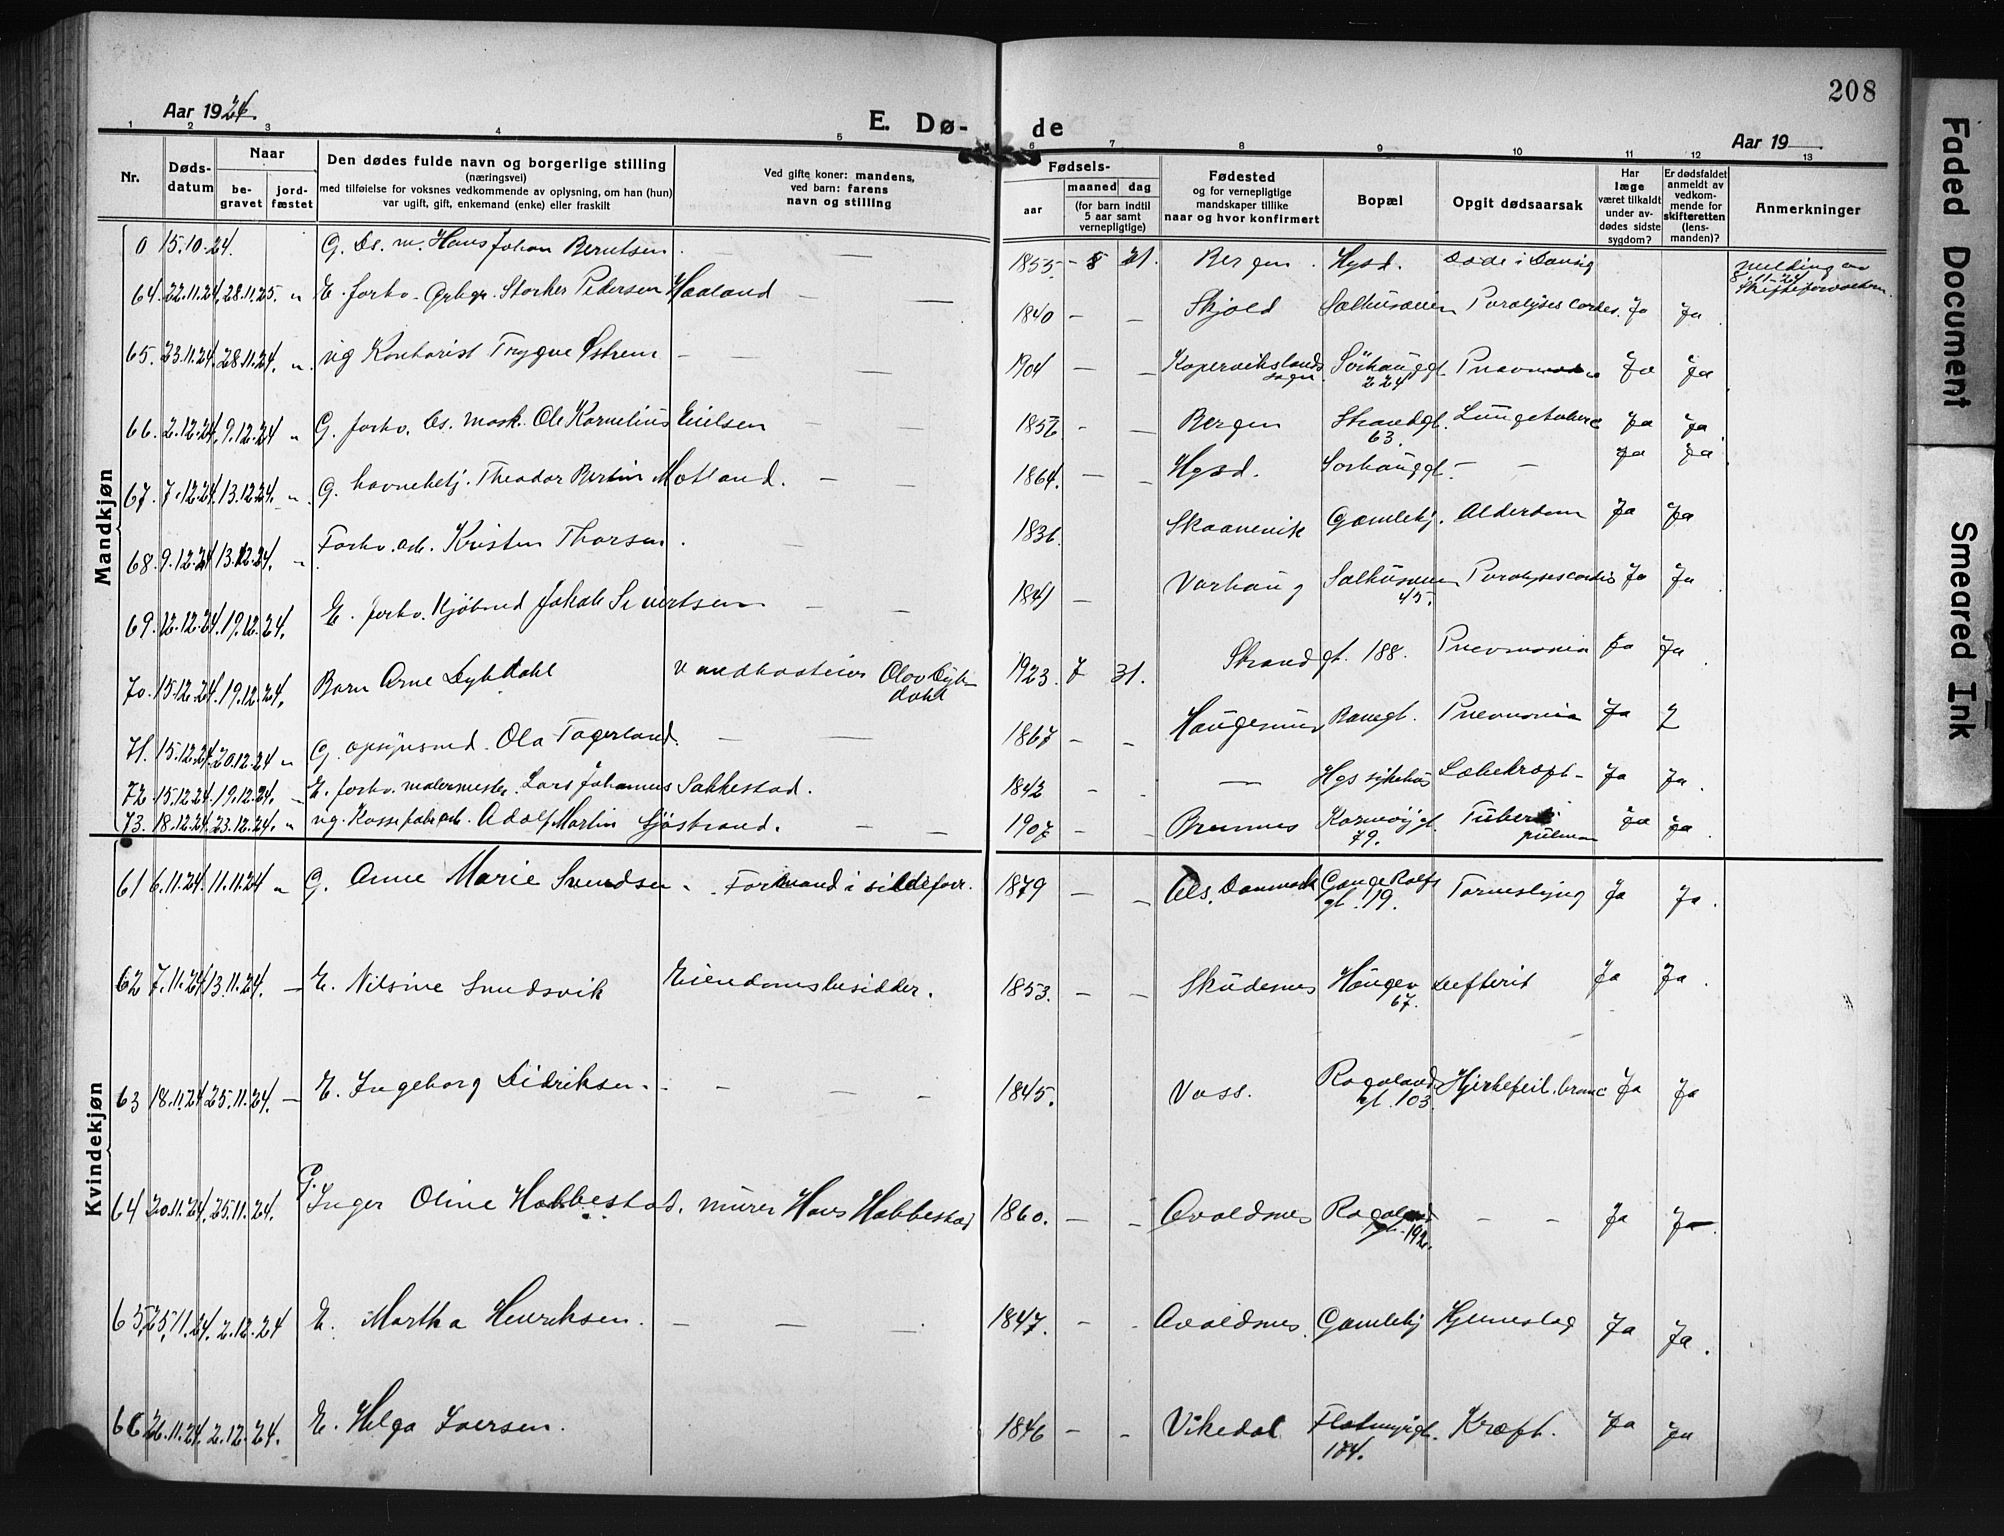 208
Aar 1924.
E. Dø-
de
Aar 19
1 2 3 4 5 6 7 8 9 10 11 12 13
Nr.
Døds-
datum
Naar
be-
gravet
jord-
fæstet
Den dødes fulde navn og borgerlige stilling
(næringsvei)
med tilføielse for voksnes vedkommende av oplysning, om han (hun)
var ugift, gift, enkemand (enke) eller fraskilt
Ved gifte koner: mandens,
ved barn: farens
navn og stilling
Fødsels-
aar
maaned
dag
(for barn indtil
5 aar samt
vernepligtige)
Fødested
og for vernepligtige
mandskaper tillike
naar og hvor konfirmert
Bopæl
Opgit dødsaarsak
Har
læge
været tilkaldt
under av-
dødes sidste
sygdom?
Er dødsfaldet
anmeldt av
vedkom-
mende for
skifteretten
(lens-
manden)?
Anmerkninger
Mandkjøn
0 15.10.24. G. Ds. m. Hans Johan Berntsen. 1855 - 5 21. Bergen. Hgsd. Døde i Danzig
Melding av
8-11-24
64. 22.11.24. 28.11.25. " E. forhv. Storker Pedersen Haaland - - 1840 - - Skjold Salhusveien Paralyses cordis. Ja Ja
65. 23.11.24. 28.11.24. " ug Kontorist Trygve - - 1904 - - Kopervik landssogn. Sörhauggt. 224 Ja Ja
66. 2.12.24. 9.12.24 " G. forhv. Ds. mask. Ole Kornelius Eielsen - - - Bergen Strandgt. 63. Ja Ja
67. 7.12.24 13.12.24. " G. havnebetj. Theodor Bertin Motland. - - 1864. - - Hgsd. Sorhauggt - - Ja Ja
68. 9.12.24 13.12.24. " Forhv. arb. Kristen Thorsen. 1836. Skaanevik Gamlehj. Alderdom Ja Ja
69. 12.12.24. 19.12.24. E. forhv. Kjöbmd Jakob Sivertsen - - 1841 - Varhaug Salhusveien 45. Paralyses cordis Ja Ja
70. 15.12.24 19.12.24. Barn Arne Dybdahl Olav Dyb-
dahl 1923. 7 31. Strandgt. 188. Pneumonia Ja Ja
71. 15.12.24. 20.12.24 " G. opsynsmd. Ola Fagerland. - - 1867 - - Haugesund Pneumonia Ja
72. 15.12.24 19.12.24. - E. forhv. malermester. Lars Johannes Sakkestad. 1842 - - - Hgs sykehus Ja Ja.
73. 18.12.24. 23.12.24. " ug. Adolf Martin Sjöstrand. - - 1907 - - Karmöygt. 79. Tuberk pulmon Ja Ja.
Kvindekjøn
61 6.11.24. 11.11.24 " G. Anne Marie Svendsen - . Formand i sildeforr. 1879 - - Als. Danmark Gange Rolfs
gt. 119. Tarmslyng Ja Ja.
62 7.11.24 13.11.24. - E. Nilsine Smedsvik Eiendomsbesidder. 1853. - - Skudesnes 67. Ja Ja.
63 18.11.24 25.11.24. - E. Ingeborg Didriksen. - - - - 1845. Voss. Rogaland
gt. 103. Hjertefeil. bronc Ja Ja
64 20.11.24. 25.11.24. G. Inger Oline Habbestad. murer Hans Habbestad 1860. - - Avaldsnes Rogaland
gt. 192. - - Ja Ja
65. 25.11.24. 2.12.24 E. Martha Henriksen. - - - 1847. - - Avaldsnes. Gamlehj Hjerneslag Ja Ja.
66. 26.11.24. 2.12.24. E. Helga Iversen. 1846 - - Vikedal Kræft. Ja Ja
Faded Document
Smeared Ink